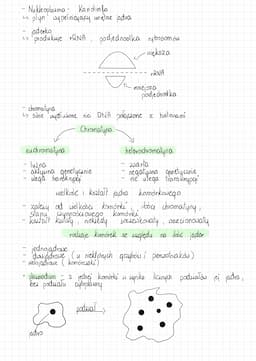 - Nukleoplazma - Kariolimfa
↳ płyn wypełniający wnętrze jądra
- jąderko
↳ produkuje rRNA, podjednostka rybosomów
większa
rRNA
mniejsza
podjednostka
- chromatyna
↳ silnie DNA połączone z histonami
Chromatyna
euchromatyna heterochromatyna
- luźna - zwarta
- aktywna genetycznie - nieaktywna genetycznie
- ulega transkrypcji - nie ulega transkrypcji
wielkość i kształt jądra komórkowego
- zależy od wielkości komórki, ilości chromatyny,
stanu fizjologicznego komórki
- kształt kulisty, niekiedy
rodzaje komórek ze względu na ilość jąder
- jednojądrowe
- dwujądrowe (u niektórych grzybów i pierwotniaków)
- wielojądrowe (komórczaki)
- plasmodium - z jednej komórki w wyniku licznych podziałów jej jądra,
bez podziału cytoplazmy
podział
jądro